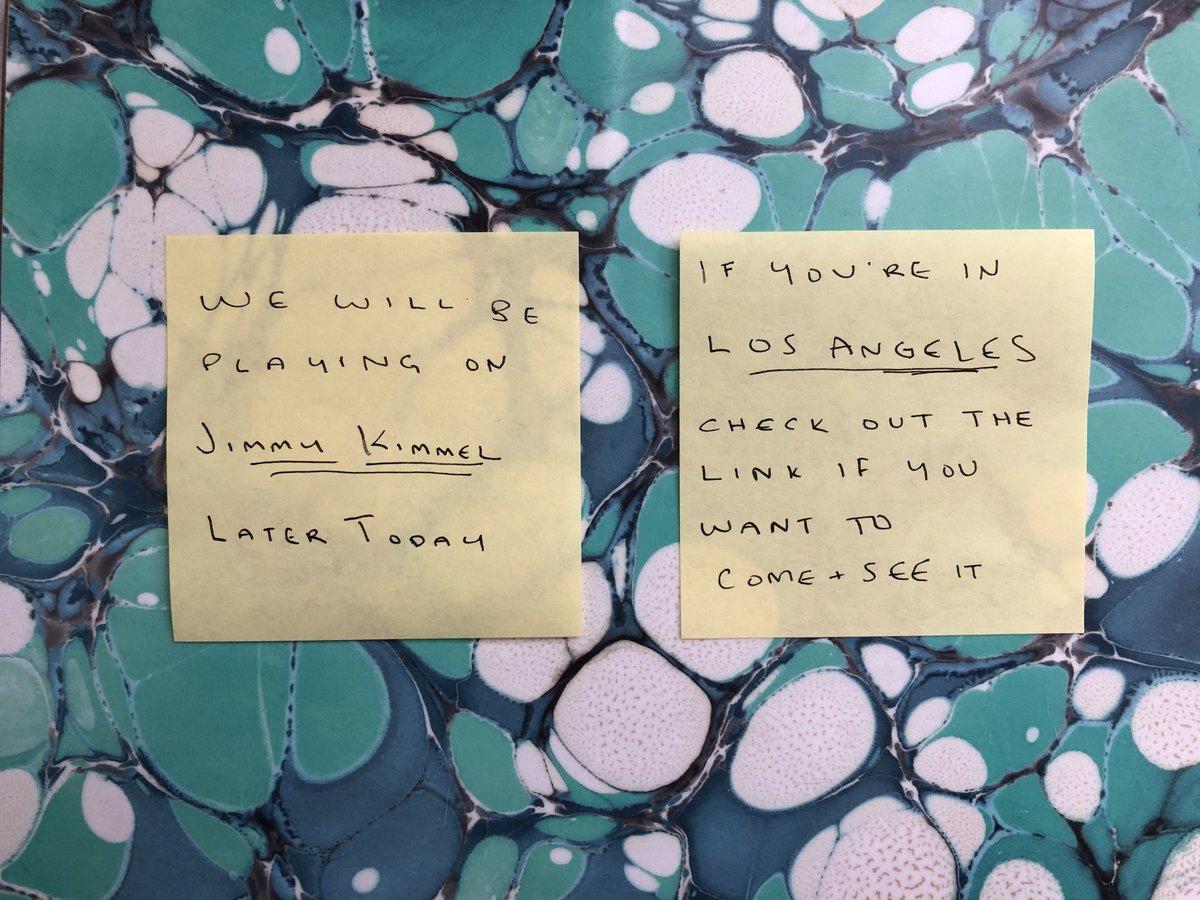 WE WILL BE
PLAYING ON
JIMMY KIMMEL
LATER TODAY
IF YOU'RE IN
LOS ANGELES
CHECK OUT THE
LINK IF YOU
WANT TO
COME + SEE IT